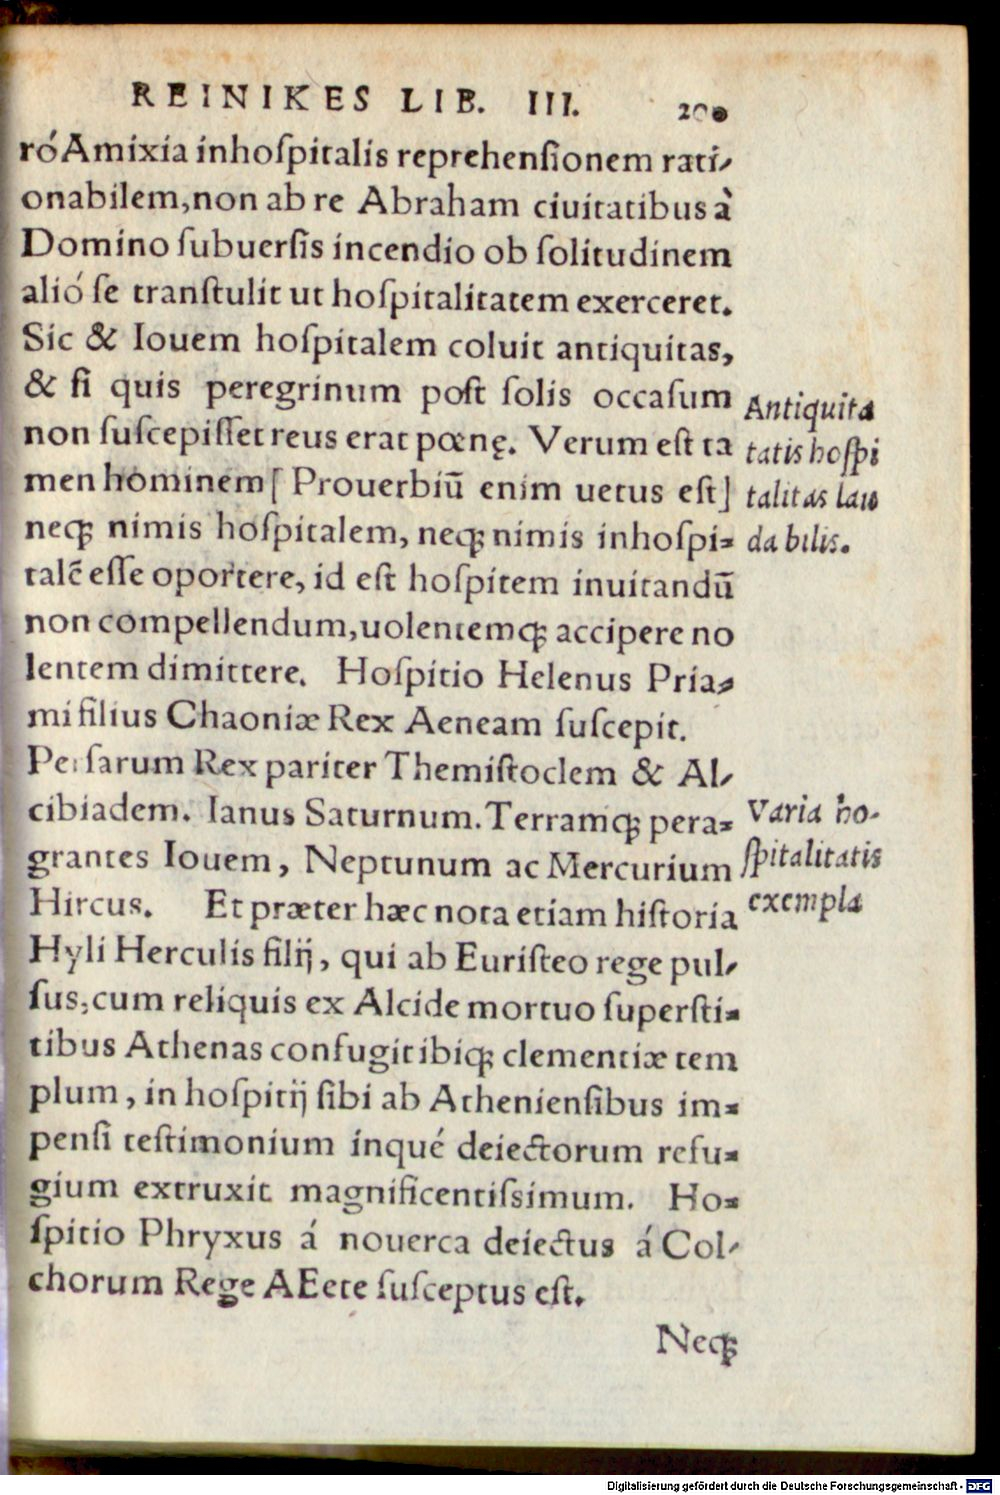 REINIKES LIB. III. 200
ró Amixia inhoſpitalis reprehenſionem rati-
onabilem, non ab re Abraham ciuitatibus à
Domino ſubuerſis incendio ob ſolitudinem
alió ſe tranſtulit ut hoſpitalitatem exerceret.
Sic & Iouem hoſpitalem coluit antiquitas,
& ſi quis peregrinum poſt ſolis occaſum
non ſuſcepiſſet reus erat pœnę. Verum eſt ta
men hominem [Prouerbiū enim uetus eſt]
neq; nimis hoſpitalem, neq; nimis inhoſpi-
talē eſſe oportere, id eſt hoſpitem inuitandū
non compellendum, uolentemq; accipere no
lentem dimittere. Hoſpitio Helenus Pria-
mi filius Chaoniæ Rex Aeneam ſuſcepit.
Perſarum Rex pariter Themiſtoclem & Al-
cibiadem. Ianus Saturnum. Terramq; pera-
grantes Iouem, Neptunum ac Mercurium
Hircus. Et præter hæc nota etiam hiſtoria
Hyli Herculis filij, qui ab Euriſteo rege pul-
ſus, cum reliquis ex Alcide mortuo ſuperſti-
tibus Athenas confugit ibiq; clementiæ tem
plum, in hoſpitij ſibi ab Athenienſibus im-
penſi teſtimonium inqué deiectorum refu-
gium extruxit magnificentiſsimum. Ho-
ſpitio Phryxus á nouerca deiectus á Col-
chorum Rege AEete ſuſceptus eſt.
Neq;
Antiquita
tatis hoſpi
talitas lau
dabilis.
Varia ho-
ſpitalitatis
exempla
Digitalisierung gefördert durch die Deutsche Forschungsgemeinschaft - DFG